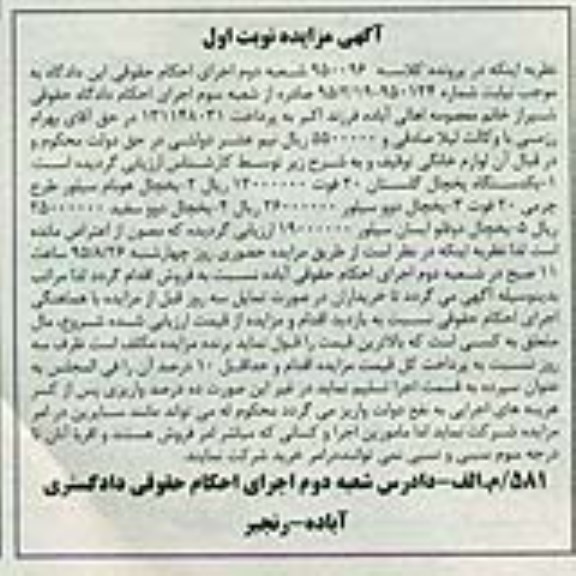 آگهی مزایده نوبت اول
نظریه اینکه در پرونده کلاسه ۹۵۰۰۹۶ شعبه دوم اجرای احکام حقوقی این دادگاه به
موجب نیابت شماره ۹۵۰۱۲۴-۹۵/۷/۱۹ صادره از شعبه سوم اجرای احکام دادگاه حقوقی
شیراز خانم معصومه اهالی آباده فرزند اکبر به پرداخت ۱۳۱۱۴۸۰۳۱ در حق آقای بهرام
رزمی با وکالت لیلا صادقی و ۵۵۰۰۰۰۰ ریال نیم عشر دولتی در حق دولت محکوم و
در قبال آن لوازم خانگی توقیف و به شرح زیر توسط کارشناس ارزیابی گردیده است:
۱-یکدستگاه یخچال گلستان ۲۰ فوت ۱۲۰۰۰۰۰۰ ریال ۲-یخچال هوتام سینور طرح
چرمی ۲۰ فوت ۳-یخچال دوو سینور ۲۶۰۰۰۰۰۰ ریال ۴-یخچال دوو سفید ۲۵۰۰۰۰۰۰
ریال ۵-یخچال دوقلو ایستان سینور ۱۹۰۰۰۰۰۰ ارزیابی گردیده که مصون از اعتراض مانده
است لذا نظریه اینکه در نظر است از طریق مزایده حضوری روز چهارشنبه ۹۵/۸/۲۶ ساعت
۱۱ صبح در شعبه دوم اجرای احکام حقوقی آباده نسبت به فروش اقدام گردد لذا مراتب
بدینوسیله آگهی می گردد تا خریداران در صورت تمایل سه روز قبل از مزایده با هماهنگی
اجرای احکام حقوقی نسبت به بازدید اقدام و مزایده از قیمت ارزیابی شده شروع، مال
متعلق به کسی است که بالاترین قیمت را قبول نماید برنده مزایده مکلف است ظرف سه
روز نسبت به پرداخت کل قیمت مزایده اقدام و حداقل ۱۰ درصد آن را فی المجلس به
عنوان سپرده به قسمت اجرا تسلیم نماید در غیر این صورت ده درصد واریزی پس از کسر
هزینه های اجرایی به نفع دولت واریز می گردد محکوم له می تواند مانند سایرین در امر
مزایده شرکت نماید اما مامورین اجرا و کسانی که مباشر امر فروش هستند و اقربا آنان تا
درجه سوم نسبی و سببی نمی توانند در امر خرید شرکت نمایند.
۵۸۱/م.الف-دادرس شعبه دوم اجرای احکام حقوقی دادگستری
آباده-رنجبر